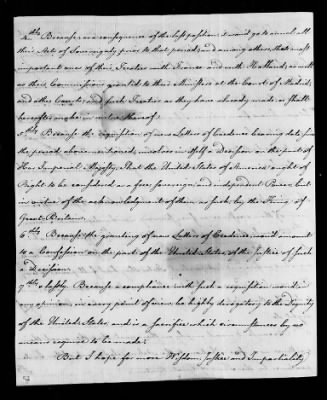 4thly Because, as a consequence of the last position it would go to annul all
their Acts of Sovereignty prior to that period, and among others, that most
important ones of their Treaties with France and with Holland, as well
as their Commissions granted to their Ministers at the Court of Madrid,
and other Courts, and such Treaties as they have already made or shall
hereafter make in virtue thereof:
5thly Because the requisition of new Letters of Credence bearing date from
the period abovementioned, involves in itself a Decision on the part of
Her Imperial Majesty, That the United States of America ought of
Right to be considered as a free, sovereign and independent Power but
in virtue of the acknowledgment of them as such by the King of
Great-Britain.
6thly Because the granting of new Letters of Credence, would amount
to a Confession on the part of the United States, of the Justice of such
a Decision.
7thly & lastly Because a compliance with such a requisition would in
my opinion, in every point of view be highly derogatory to the dignity
of the United States, and is a Sacrifice which circumstances by no
means require to be made:
But I hope for more Wisdom, Justice and Impartiality